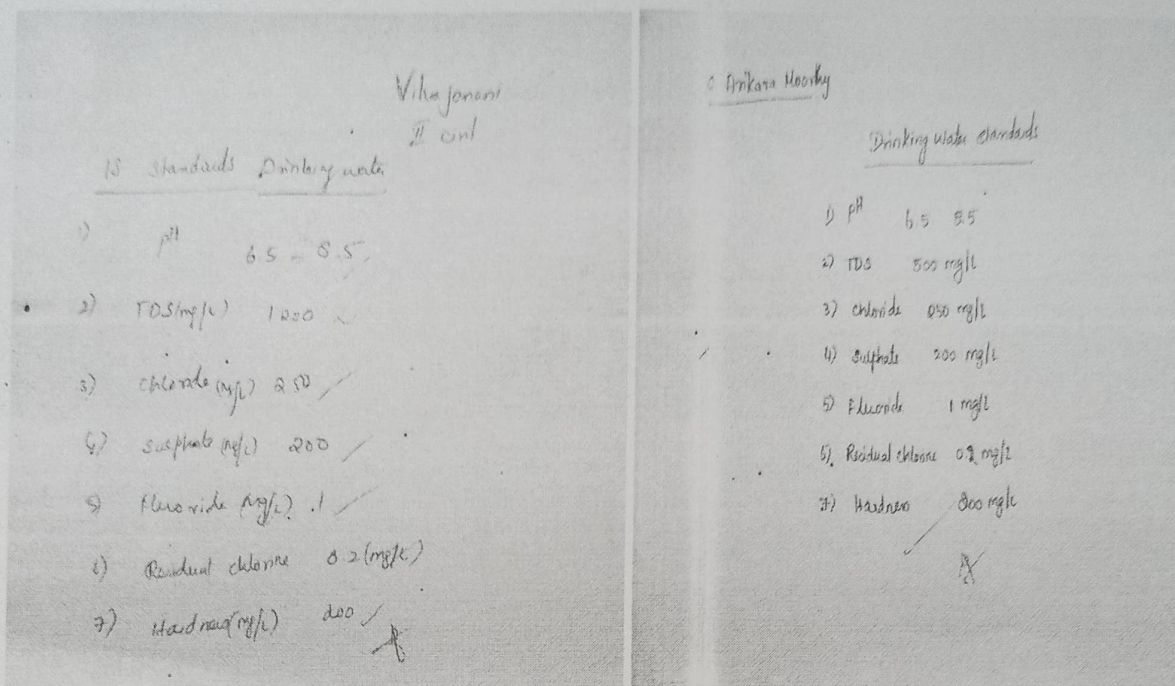 II
IS Standards Drinking water
1) pH 6.5 - 8.5
2) TDS(mg/L)
3) chloride (mg/L) 250
4) Sulphate (mg/L) 200
5) Fluoride (mg/L) .1
6) Residual chlorine 0.2 (mg/L)
7) Hardness (mg/L) 200
Moorthy
Drinking water standards
1) pH 6.5 8.5
2) TDS 500 mg/l
3) chloride 250 mg/l
4) Sulphate 200 mg/l
5) Fluoride 1 mg/l
5). Residual chlorine mg/l
7) Hardness mg/l